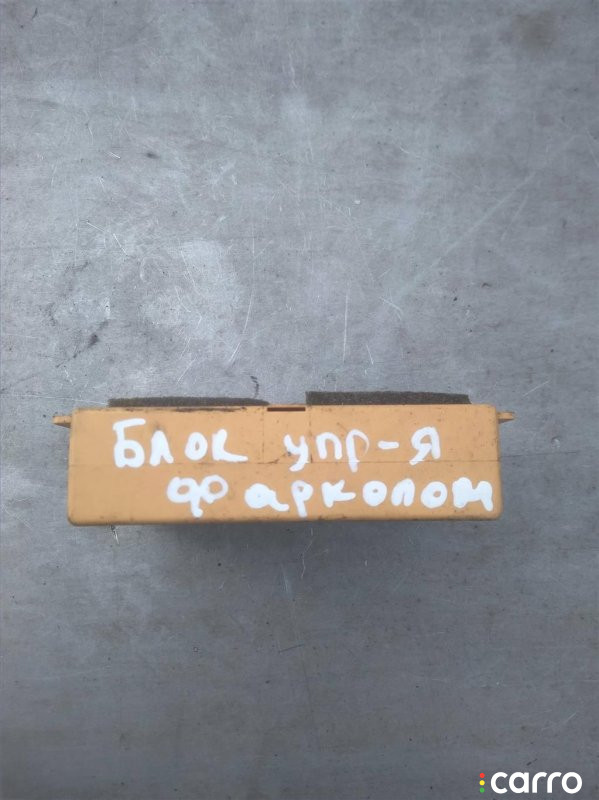 Блок упр-я
фаркопом
carro